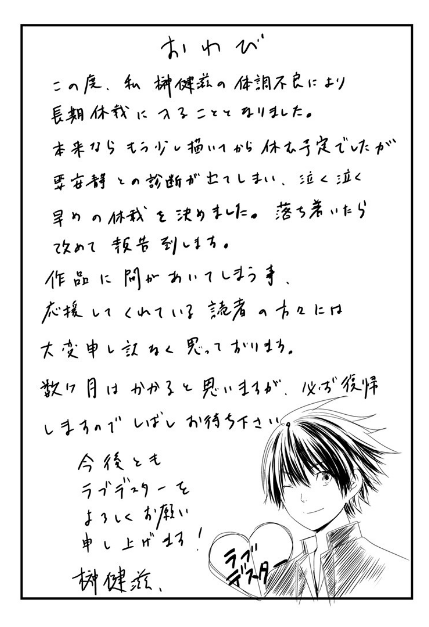 おわび
この度、私 榊健滋の体調不良により
長期休載に入ることとなりました。
本来ならもう少し描いてから休む予定でしたが
要安静との診断が出てしまい、泣く泣く
早めの休載を決めました。落ち着いたら
改めて報告致します。
作品に間があいてしまう事、
応援してくれている読者の方々には
大変申し訳なく思っております。
数ヶ月はかかると思いますが、必ず復帰
しますのでしばしお待ち下さい。
今後とも
ラブデスターを
よろしくお願い
申し上げます!
榊健滋、
ラブ
デスター